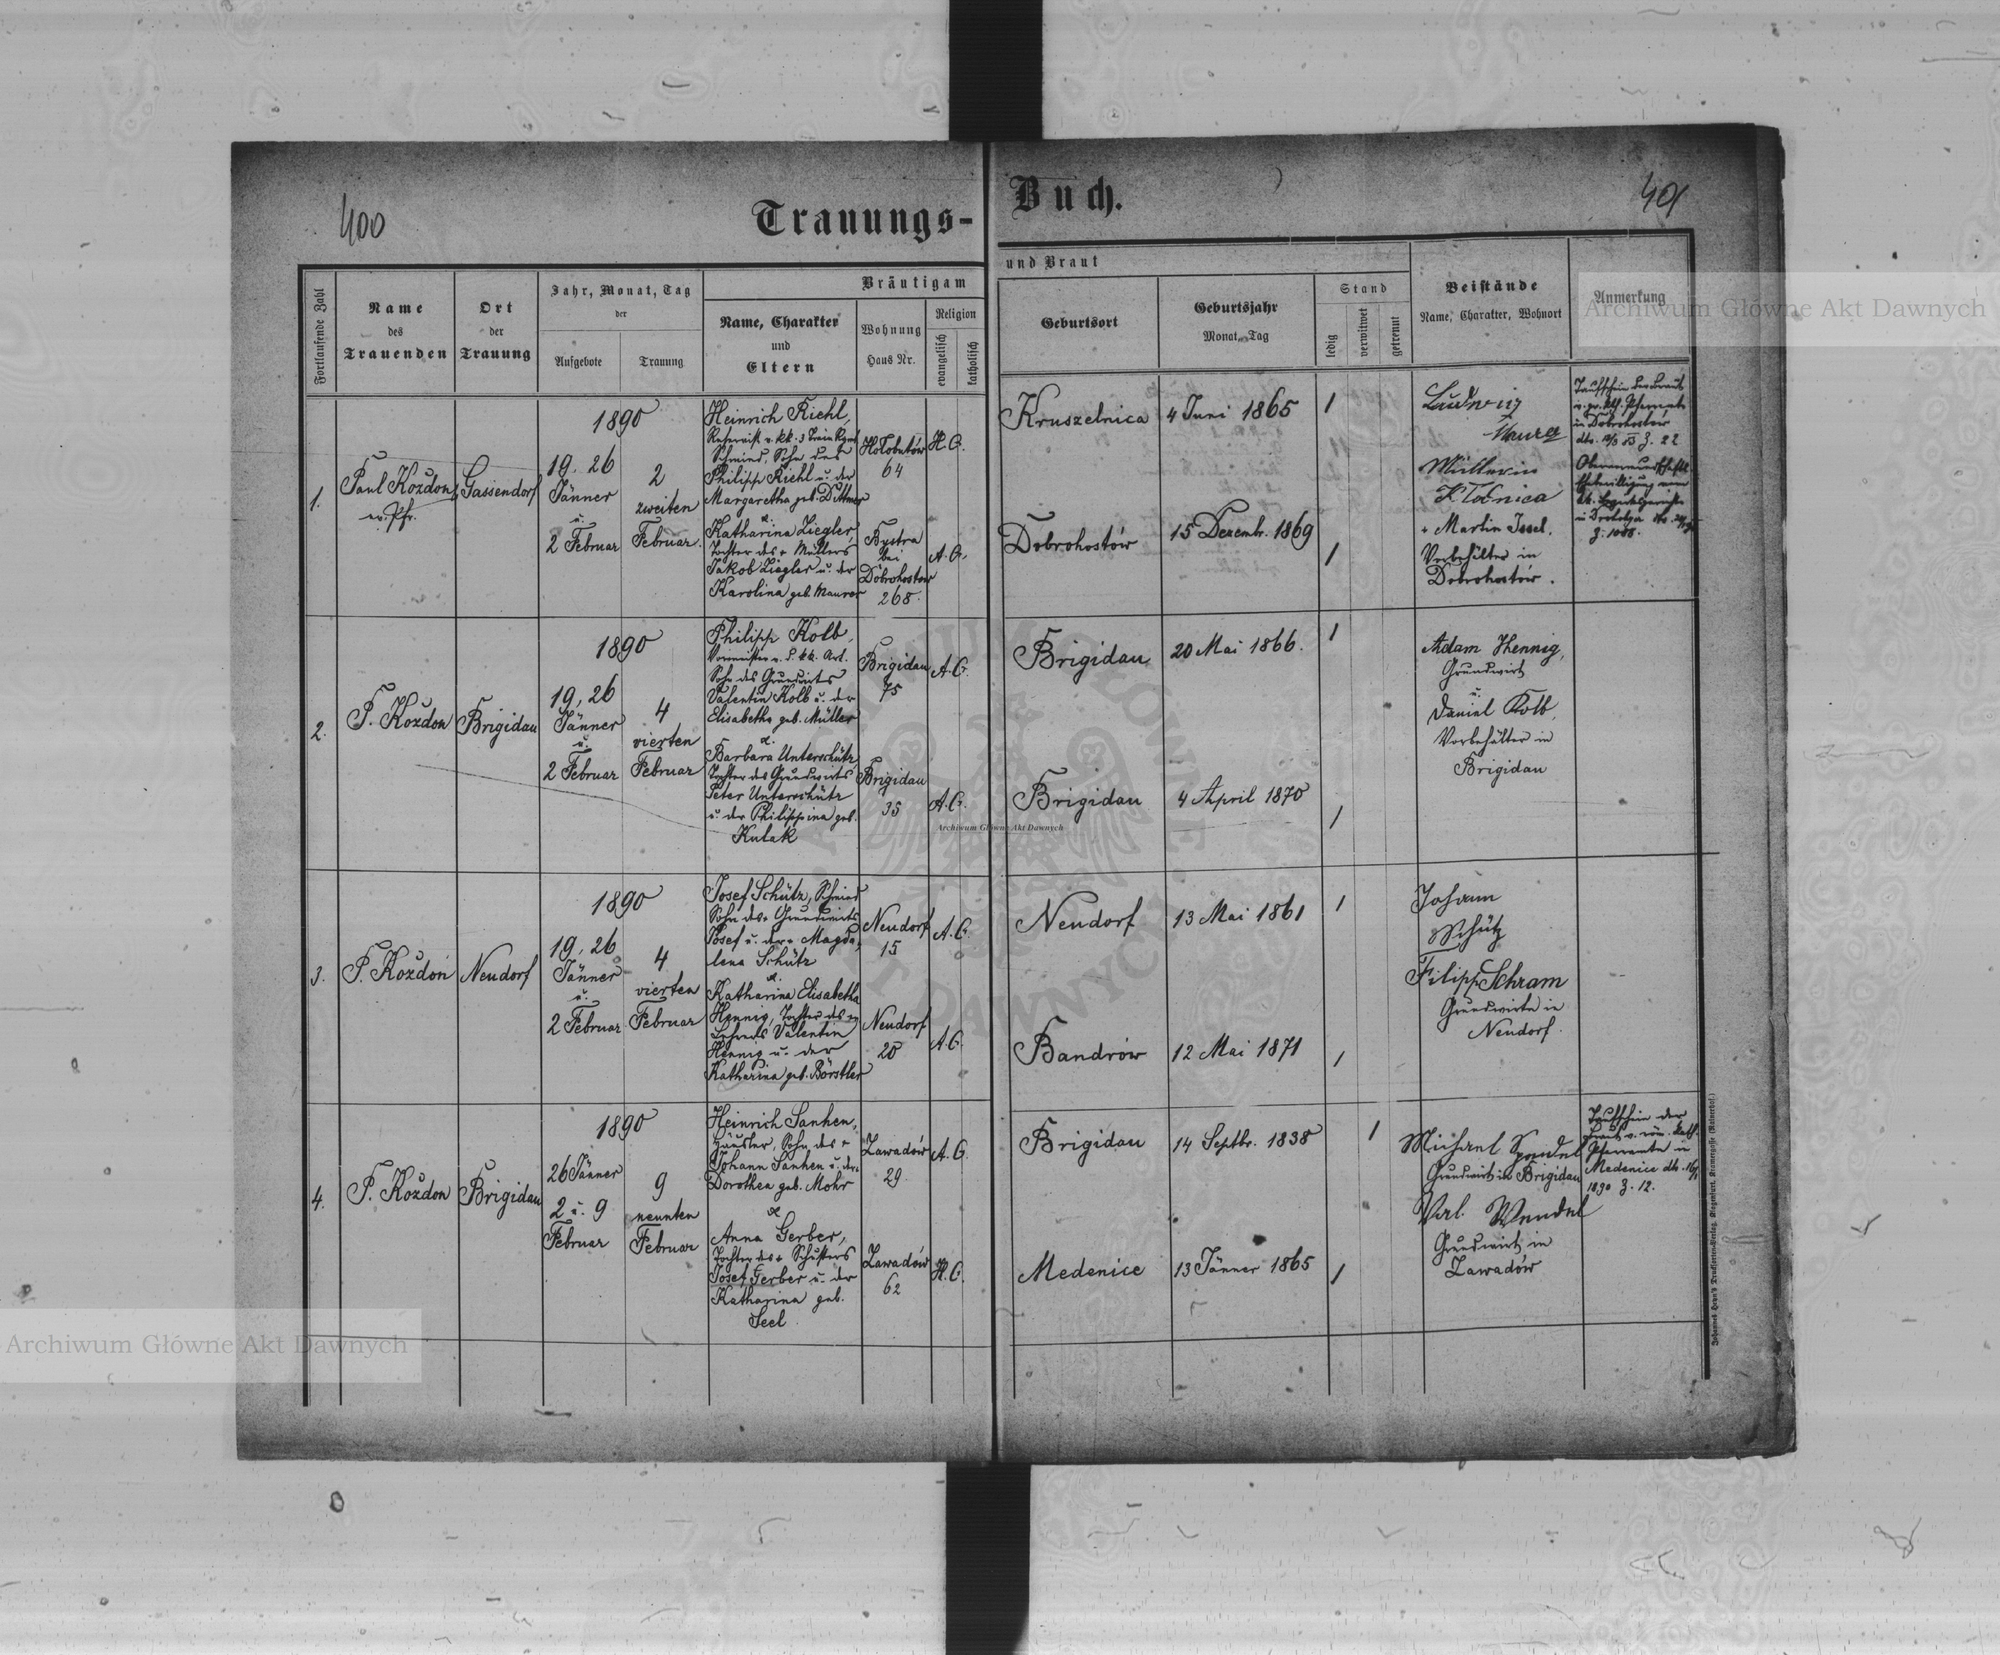 400
Trauungs-
Buch.
401
Fortlaufende Zahl
Name
des
Trauenden
Ort
der
Trauung
Jahr, Monat, Tag
der
Aufgebote
Trauung
Bräutigam
Name, Charakter
und
Eltern
Wohnung
Haus Nr.
Religion
evangelisch
katholisch
und Braut
Geburtsort
Geburtsjahr
Monat, Tag
Stand
ledig
verwitwet
getrennt
Beistände
Name, Charakter, Wohnort
Anmerkung
1.
Paul Kozdon,
ev. Pfr.
Gassendorf
1890
19. 26
Jänner
u.
2 Februar
2
zweiten
Februar.
Heinrich Riehl,
Schmied, Sohn des
Philipp Riehl u. der
Margaretha geb. Dittmer
&
Katharina Ziegler,
Tochter des + Müllers
Jakob Ziegler u. der
Karolina geb. Maurer
Hołobutów
64
Bystra
bei
Dobrohostow
268.
H. C.
A. C.
Kruszelnica
4 Juni 1865
Dobrohostów
15 Dezembr. 1869
Ludwig
Maurer
Müller in
Kłodnica
+ Martin Issel,
Vorbehälter in
Dobrohostów.
Taufschein der Braut
v. gr. kth. Pfarramte
in Dobrohostów
Z. 22
Z. 1088.
2.
P. Kozdon
Brigidau
1890
19, 26
Jänner
u.
2 Februar
4
vierten
Februar
Philipp Kolb,
Sohn des Grundwirts
Valentin Kolb u. der
Elisabetha geb. Müller
&
Barbara Unterschütz
Tochter des Grundwirts
Peter Unterschütz
u. der Philippina geb.
Kutak
Brigidau
75
Brigidau
35
A. C.
A. C.
Brigidau
20 Mai 1866.
Brigidau
4 April 1870
Adam Hennig,
Grundwirt
u.
Daniel Kolb,
Vorbehälter in
Brigidau
3.
P. Kozdon
Neudorf
1890
19, 26
Jänner
u.
2 Februar
4
vierten
Februar
Josef Schütz, Schmied
Sohn des + Grundwirts
Josef u. der + Magda-
lena Schütz
&
Katharina Elisabetha
Hennig, Tochter des
Lehrers Valentin
Hennig u. der
Katharina geb. Börstler
Neudorf
15
Neudorf
20
A. C.
A. C.
Neudorf
13 Mai 1861
Bandrów
12 Mai 1871
Johann
Schütz
Filipp Schram
Grundwirte in
Neudorf.
4.
P. Kozdon
Brigidau
1890
26 Jänner
2 u. 9
Februar
9
neunten
Februar
Heinrich Sanhen,
Häusler, Sohn des +
Johann Sanhen u. der +
Dorothea geb. Mohr
&
Anna Gerber,
Tochter des + Schusters
Josef Gerber u. der
Katharina geb.
Seel
Zawadów
29.
Zawadów
62
A. C.
H. C.
Brigidau
14 Septbr. 1838
Medenice
13 Jänner 1865
Michael Spendel
Grundwirt in Brigidau
Val. Wendel
Grundwirt in
Zawadów
Taufschein der
Braut v. röm. kath.
Pfarramte in
Medenice
1890 Z. 12.
Archiwum Główne Akt Dawnych
Archiwum Główne Akt Dawnych
Archiwum Główne Akt Dawnych